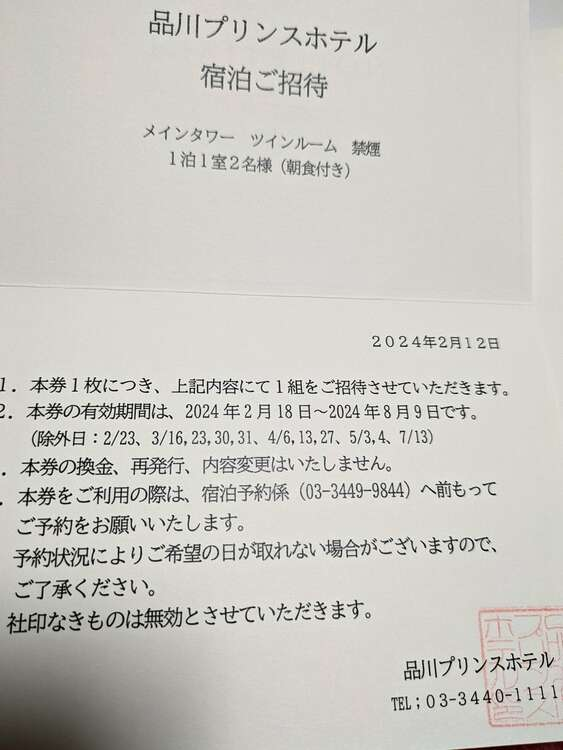 品川プリンスホテル
宿泊ご招待
メインタワー　ツインルーム　禁煙
1泊1室2名様（朝食付き）
2024年2月12日
1．本券1枚につき、上記内容にて1組をご招待させていただきます。
2．本券の有効期間は、2024年2月18日～2024年8月9日です。
（除外日：2/23、3/16,23,30,31、4/6,13,27、5/3,4、7/13）
．本券の換金、再発行、内容変更はいたしません。
．本券をご利用の際は、宿泊予約係（03-3449-9844）へ前もって
ご予約をお願いいたします。
予約状況によりご希望の日が取れない場合がございますので、
ご了承ください。
社印なきものは無効とさせていただきます。
品川プリンスホテル
TEL；03-3440-1111